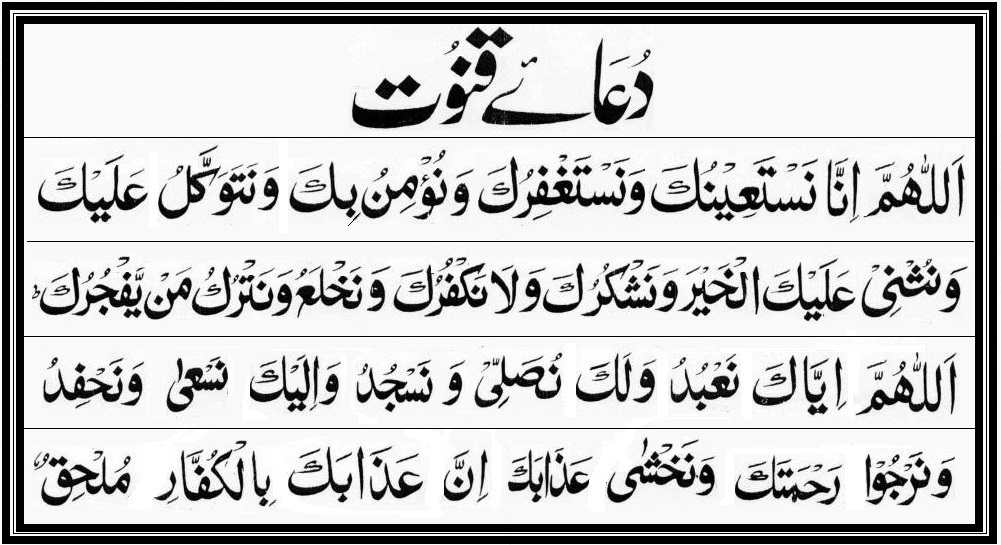 دُعَائے قنُوت
اَللّٰهُمَّ اِنَّا نَسْتَعِيْنُكَ وَنَسْتَغْفِرُكَ وَنُؤْمِنُ بِكَ وَنَتَوَكَّلُ عَلَيْكَ
وَنُثْنِیْ عَلَيْكَ الْخَيْرَ وَنَشْكُرُكَ وَلَا نَكْفُرُكَ وَنَخْلَعُ وَنَتْرُكُ مَنْ يَّفْجُرُكَ ؕ
اَللّٰهُمَّ اِيَّاكَ نَعْبُدُ وَلَكَ نُصَلِّیْ وَنَسْجُدُ وَاِلَيْكَ نَسْعٰی وَنَحْفِدُ
وَنَرْجُوْا رَحْمَتَكَ وَنَخْشٰی عَذَابَكَ اِنَّ عَذَابَكَ بِالْكُفَّارِ مُلْحِقٌ